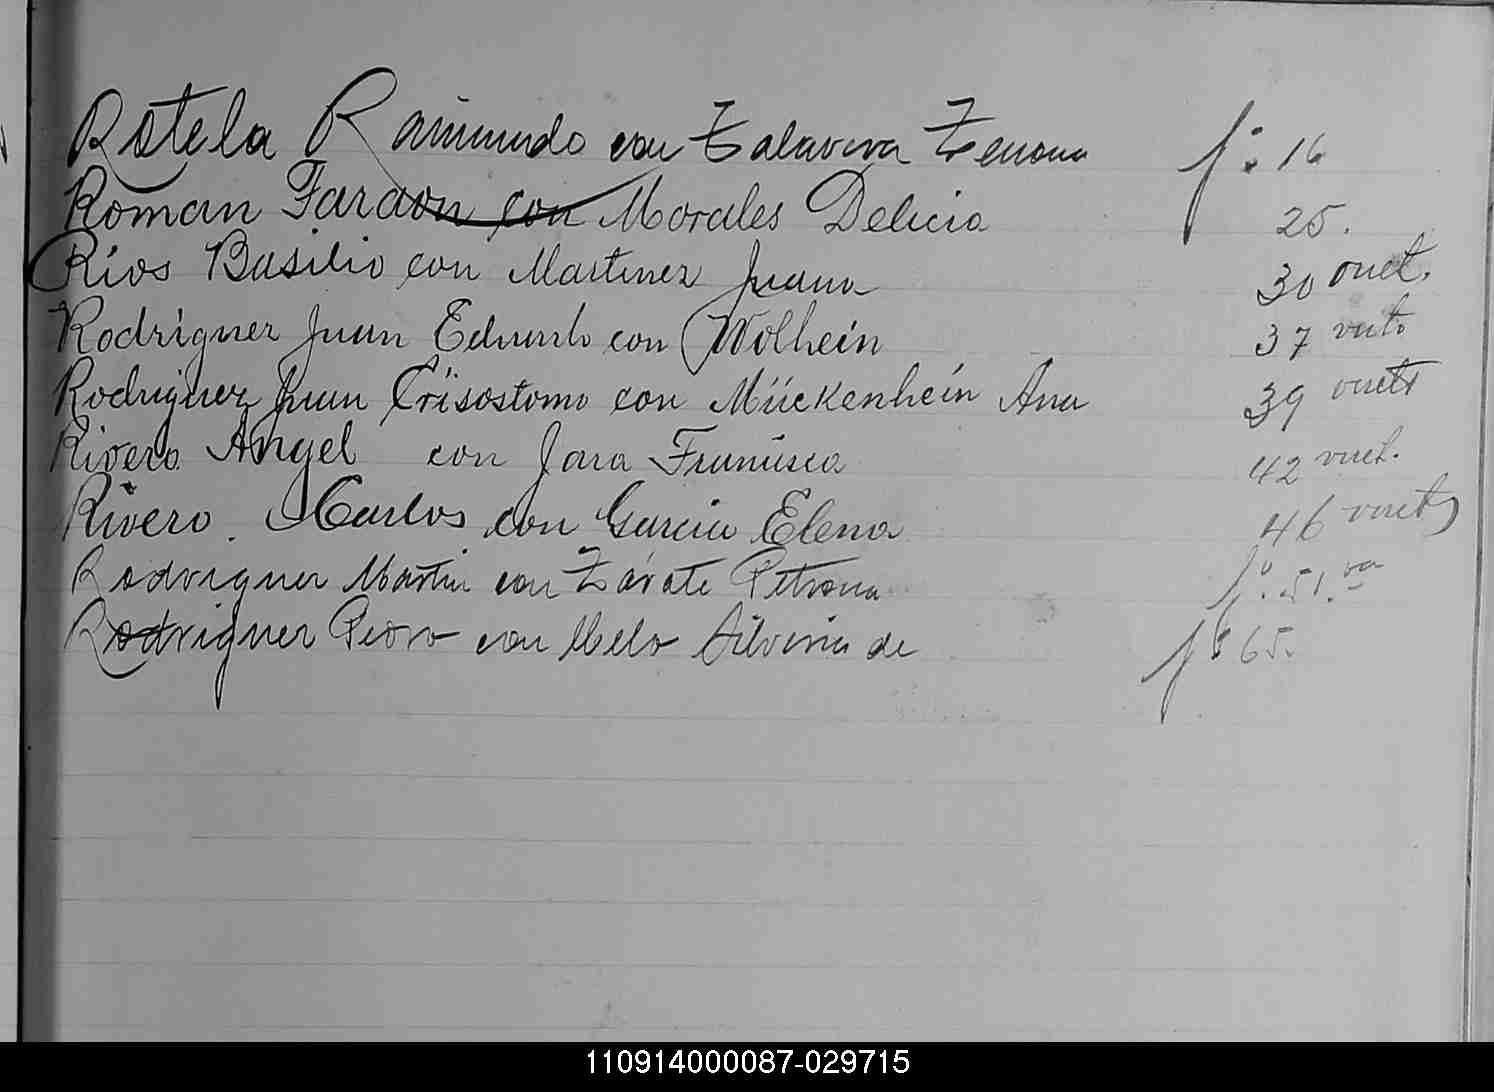 Rotela Raimundo con Talavera Zenona f: 16
Roman Faraon con Morales Delicia 25.
Rios Basilio con Martinez Juana 30 vuelt.
Rodriguez Juan Eduardo con Wolhein 37 vuelt.
Rodriguez Juan Crisostomo con Mückenhein Ana 39 vuelt
Rivero Angel con Jara Francisca 42 vuelt.
Rivero Carlos con Garcia Elena 46 vuelt
Rodriguez Martin con Zárate Petrona f: 51. va
Rodriguez Pedro con Melo Silveria de f: 65.
110914000087-029715